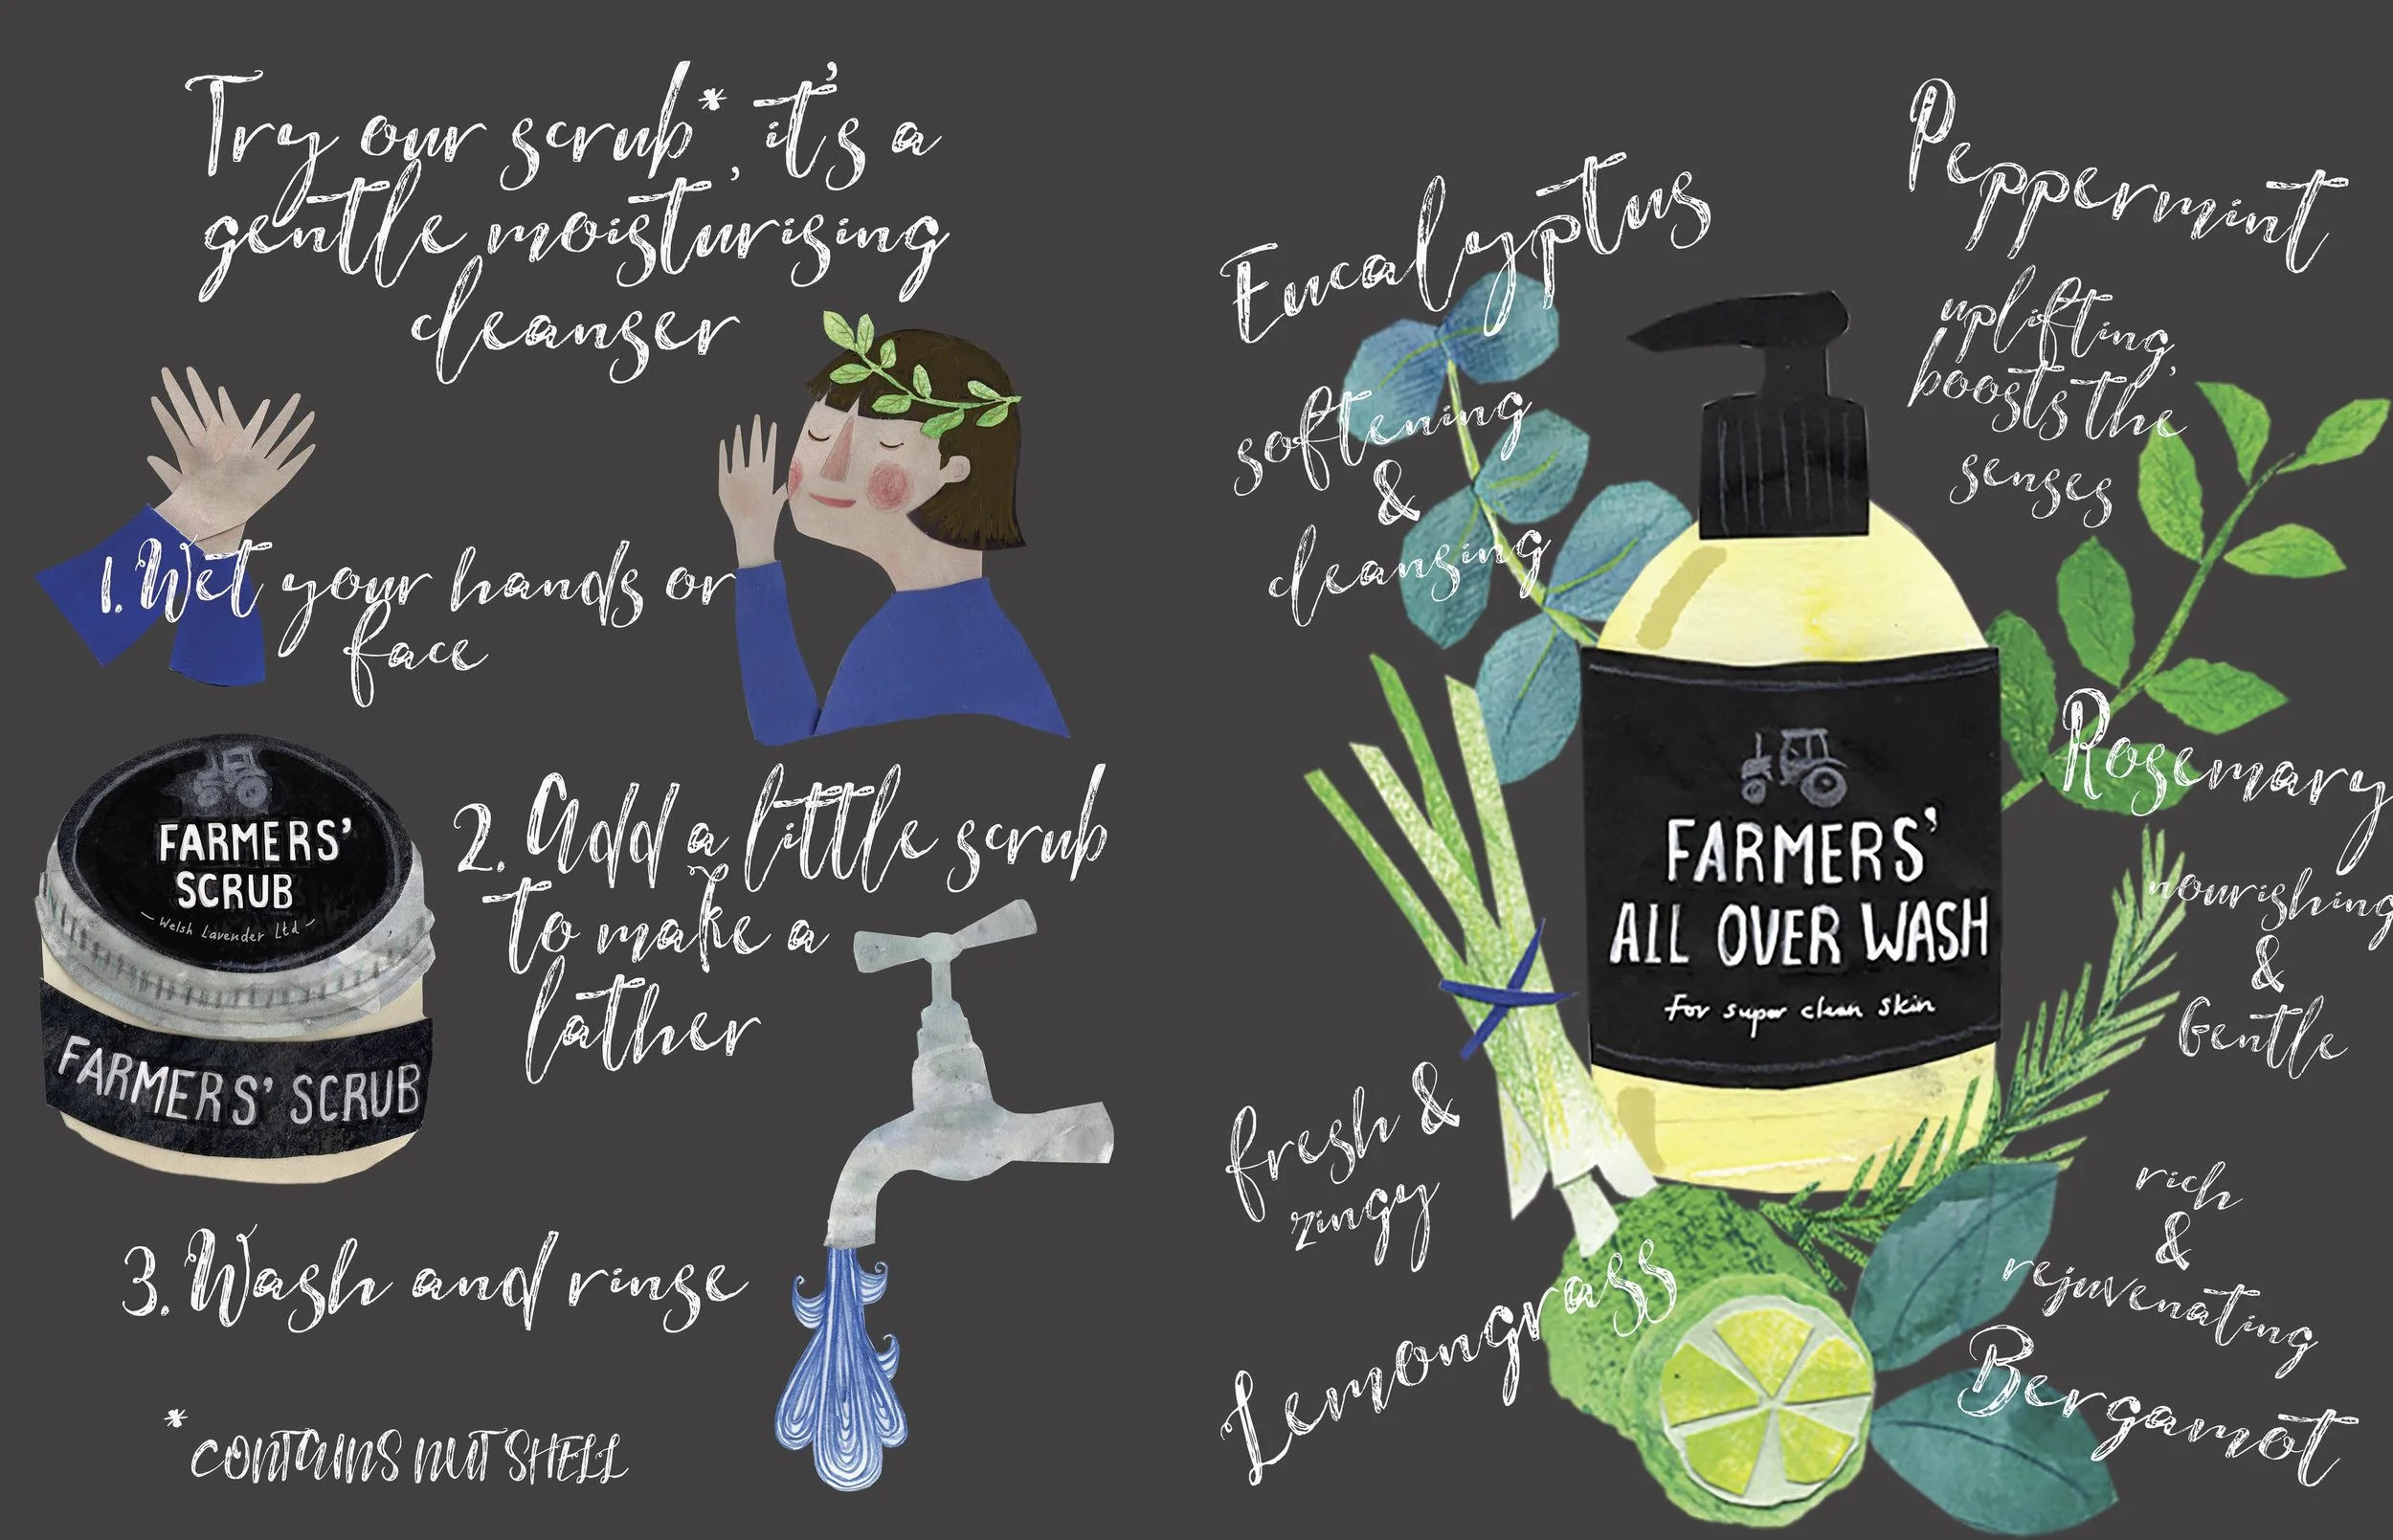 Try our scrub*, it's a
gentle moisturising
cleanser
1. Wet your hands or
face
FARMERS'
SCRUB
- Welsh Lavender Ltd -
FARMERS' SCRUB
2. Add a little scrub
to make a
lather
3. Wash and rinse
*CONTAINS NUT SHELL
Eucalyptus
softening
&
cleansing
Peppermint
uplifting,
boosts the
senses
FARMERS'
ALL OVER WASH
for super clean skin
Rosemary
nourishing
&
Gentle
fresh &
zingy
Lemongrass
rich
&
rejuvenating
Bergamot